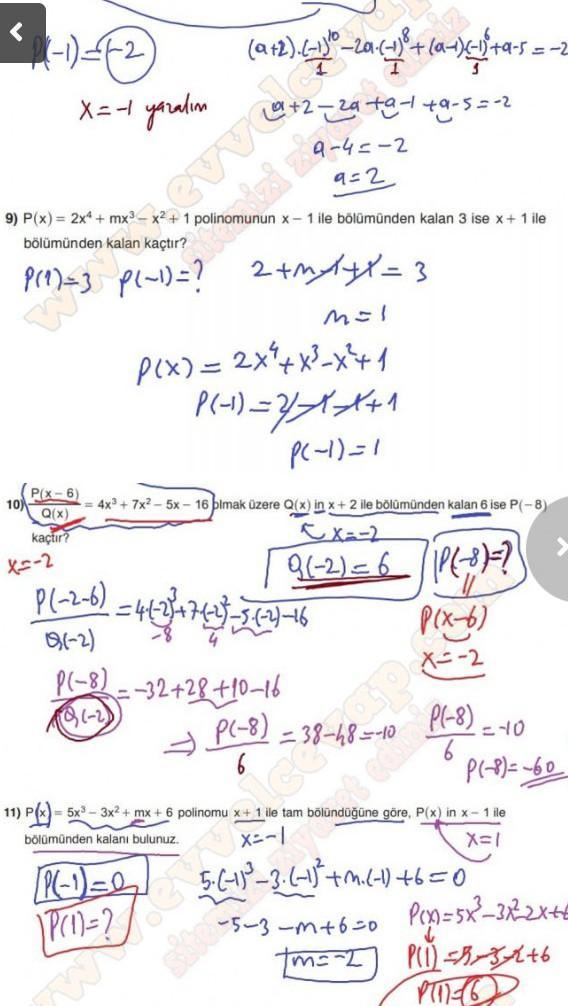 P(-1) = -2
(a+2).(-1)¹⁰ - 2a.(-1)⁸ + (a-1)(-1)⁶ + a-5 = -2
1 1 1
x = -1 yazalım
a+2-2a+a-1+a-5 = -2
a-4 = -2
a = 2
9) P(x) = 2x⁴ + mx³ – x² + 1 polinomunun x – 1 ile bölümünden kalan 3 ise x + 1 ile
bölümünden kalan kaçtır?
P(1)=3 P(-1)=? 2+m-1+1 = 3
m = 1
P(x) = 2x⁴+x³-x²+1
P(-1) = 2-1-1+1
P(-1) = 1
10) P(x – 6)
Q(x)
= 4x³ + 7x² – 5x – 16 olmak üzere Q(x) in x + 2 ile bölümünden kalan 6 ise P(– 8)
kaçtır?
x = -2
x = -2
Q(-2) = 6
P(-8) = ?
P(-2-6)
Q(-2)
= 4.(-2)³+7.(-2)²-5.(-2)-16
-8 4
P(x-6)
x = -2
P(-8)
Q(-2)
= -32+28+10-16
⇒ P(-8)
6
= 38-48 = -10
P(-8)
6
= -10
P(-8) = -60
11) P(x) = 5x³ – 3x² + mx + 6 polinomu x + 1 ile tam bölündüğüne göre, P(x) in x – 1 ile
bölümünden kalanı bulunuz.
x = -1
x = 1
P(-1) = 0
5.(-1)³-3.(-1)²+m.(-1)+6 = 0
P(1) = ?
-5-3-m+6 = 0
m = -2
P(x) = 5x³-3x²-2x+6
P(1) = 5-3-2+6
P(1) = 6
www.evvelcevap.com
sitemizi ziyaret ediniz
www.evvelcevap.com
sitemizi ziyaret ediniz